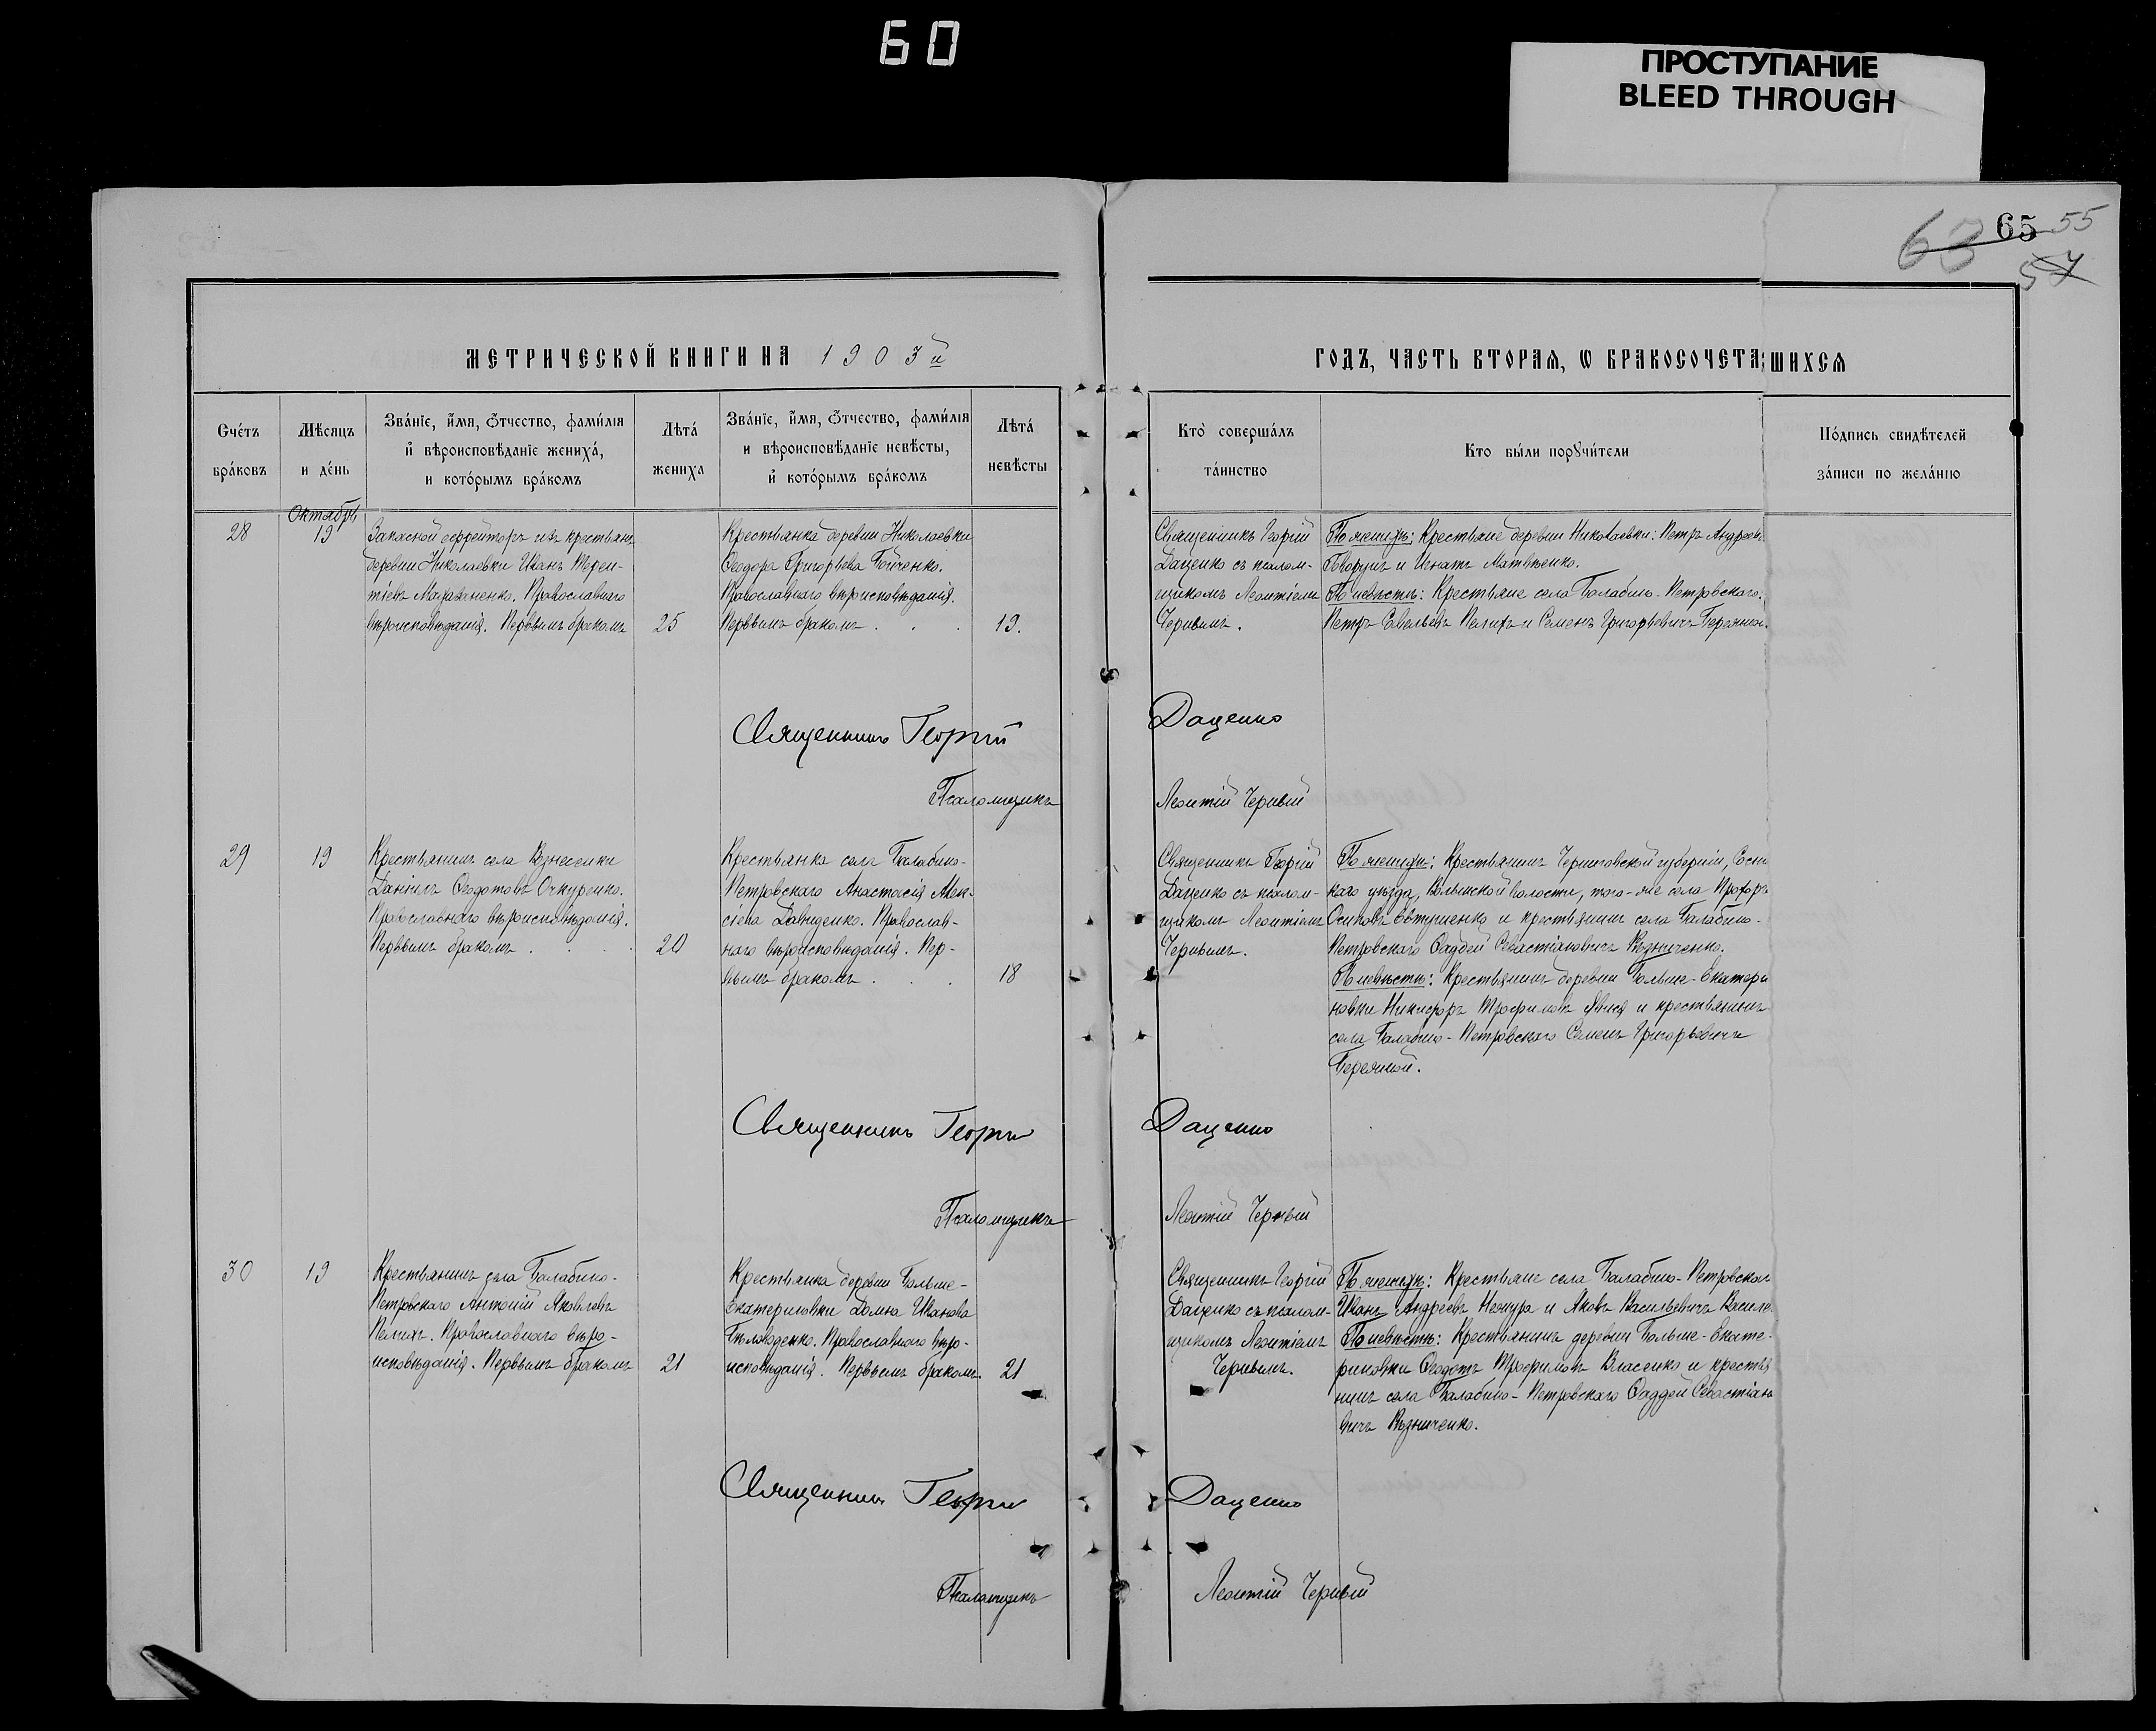 60
ПРОСТУПАНИЕ
BLEED THROUGH
63 65 55
57
МЕТРИЧЕСКОЙ КНИГИ НА 1903й
ГОДЪ, ЧАСТЬ ВТОРАѦ, Ѡ БРАКОСОЧЕТАВШИХСѦ
Сче́тъ бра́ковъ
Мѣсяцъ и де́нь
Зва́нїе, и́мя, ѻ́тчество, фами́лїя и҆ вѣроисповѣданїе жениха́, и кото́рымъ бра́комъ
Лѣта́ жениха
Зва́нїе, и́мя, ѻ́тчество, фами́лїя и вѣроисповѣданїе невѣсты, и҆ кото́рымъ бра́комъ
Лѣта́ невѣсты
Кто̀ соверша́лъ та́инство
Кто бы́ли порꙋчи́тели
По́дпись свидѣтелей за́писи по жела́нію
Октябрь
28
19
Запасной ефрейторъ изъ крестьянъ
деревни Николаевки Иванъ Терен-
тіевъ. Православнаго
вѣроисповѣданія. Первымъ бракомъ
25
Крестьянка деревни Николаевки
Ѳеодора Григорьева Бойченко.
Православнаго вѣроисповѣданія.
Первымъ бракомъ . . .
19.
Священникъ Георгій
Даценко съ псалом-
щикомъ Леонтіемъ
Чернымъ.
По женихѣ: Крестьяне деревни Николаевки: Петръ Андреевъ
и Игнатъ Матвѣенко.
По невѣстѣ: Крестьяне села Балабино-Петровскаго:
Петръ Савельевъ Пелихъ и Семенъ Григорьевичъ
Священникъ Георгій Даценко
Псаломщикъ Леонтій Черный
29
19
Крестьянинъ села Вознесенки
Даніилъ Ѳеодотовъ Очкуренко.
Православнаго вѣроисповѣданія.
Первымъ бракомъ . . .
20
Крестьянка села Балабино-
Петровскаго Анастасія Алек-
сіева Давиденко. Православ-
наго вѣроисповѣданія. Пер-
вымъ бракомъ . . .
18
Священникъ Георгій
Даценко съ псалом-
щикомъ Леонтіемъ
Чернымъ.
По женихѣ: Крестьянинъ Черниговской губерніи, Сосни
каго уѣзда, Волынской волости, того-же села Прохоръ
Осиповъ Евтушенко и крестьянинъ села Балабино-
Петровскаго Ѳаддей Севастіановичъ Возниченко.
По невѣстѣ: Крестьянинъ деревни Больше-Екатери
новки Никифоръ Трофимовъ и крестьянинъ
села Балабино-Петровскаго Семенъ Григорьевичъ
Бережной.
Священникъ Георгій Даценко
Псаломщикъ Леонтій Черный
30
19
Крестьянинъ села Балабино-
Петровскаго Антоній Яковлевъ
Пелихъ. Православнаго вѣро-
исповѣданія. Первымъ бракомъ
21
Крестьянка деревни Больше-
Екатериновки Домна Иванова
Бѣловоденко. Православнаго вѣро-
исповѣданія. Первымъ бракомъ.
21
Священникъ Георгій
Даценко съ псалом-
щикомъ Леонтіемъ
Чернымъ.
По женихѣ: Крестьяне села Балабино-Петровскаго
Иванъ Андреевъ и Яковъ Васильевичъ
По невѣстѣ: Крестьянинъ деревни Больше-Екате-
риновки Ѳеодотъ Трофимовъ Власенко и крестья
нинъ села Балабино-Петровскаго Ѳаддей Севастіано
вичъ Возниченко.
Священникъ Георгій Даценко
Псаломщикъ Леонтій Черный